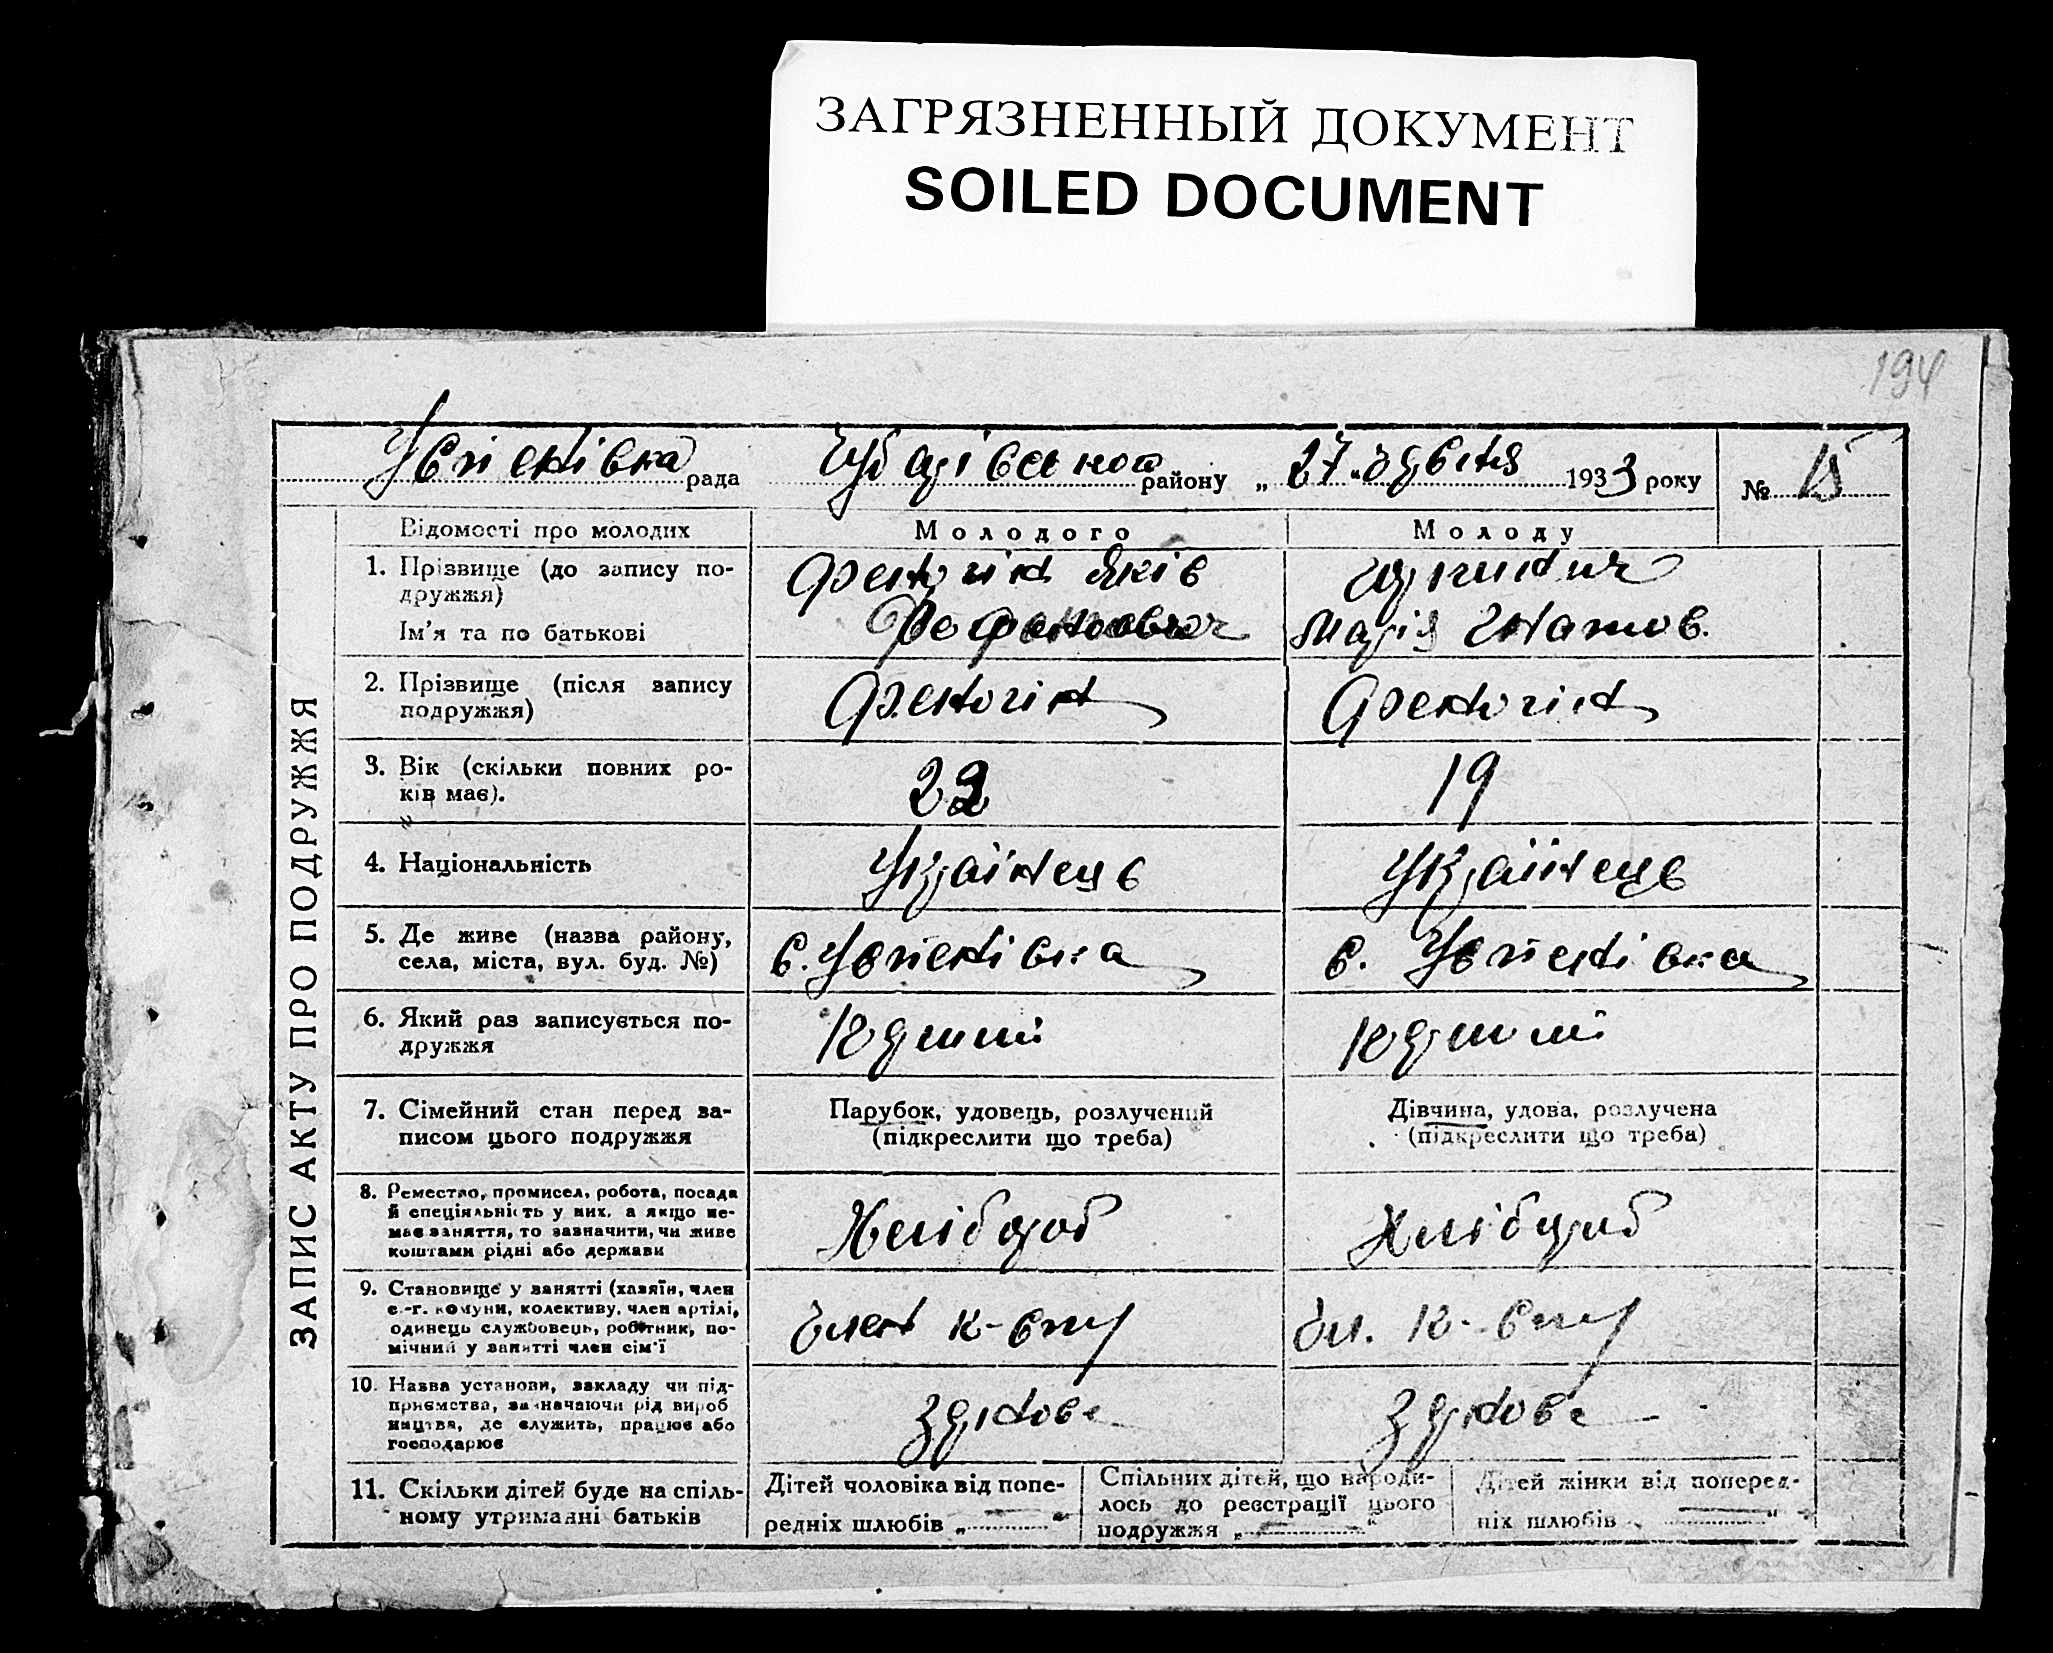 ЗАГРЯЗНЕННЫЙ ДОКУМЕНТ
SOILED DOCUMENT
194
Успенівка рада Чубарівської району „ 27 " 1933 року № 15
ЗАПИС АКТУ ПРО ПОДРУЖЖЯ
Відомості про молодих
Молодого
Молоду
1. Прізвище (до запису по-
дружжя)
Ім'я та по батькові
Яків
Марія
2. Прізвище (після запису
подружжя)
3. Вік (скільки повних ро-
ків має).
22
19
4. Національність
Українець
Українець
5. Де живе (назва району,
села, міста, вул. буд. №)
с. Успенівка
с. Успенівка
6. Який раз записується по-
дружжя
7. Сімейний стан перед за-
писом цього подружжя
Парубок, удовець, розлучений
(підкреслити що треба)
Дівчина, удова, розлучена
(підкреслити що треба)
8. Ремество, промисел, робота, посада
й спеціяльність у них, а якщо не-
має заняття, то зазначити, чи живе
коштами рідні або держави
Хлібороб
Хлібороб
9. Становище у занятті (хазяїн, член
с.-г. комуни, колективу, член артілі,
одинець службовець, робітник, по-
мічний у занятті член сім'ї
Член к-спу
Чл. к-спу
10. Назва установи, закладу чи під-
приємства, зазначаючи рід вироб
ництва, де служить, працює або
господарює
Зернове
Зернове
11. Скільки дітей буде на спіль-
ному утриманні батьків
Дітей чоловіка від попе-
редніх шлюбів „ — "
Спільних дітей, що народи-
лось до реєстрації цього
подружжя „ — "
Дітей жінки від поперед-
ніх шлюбів „ — "